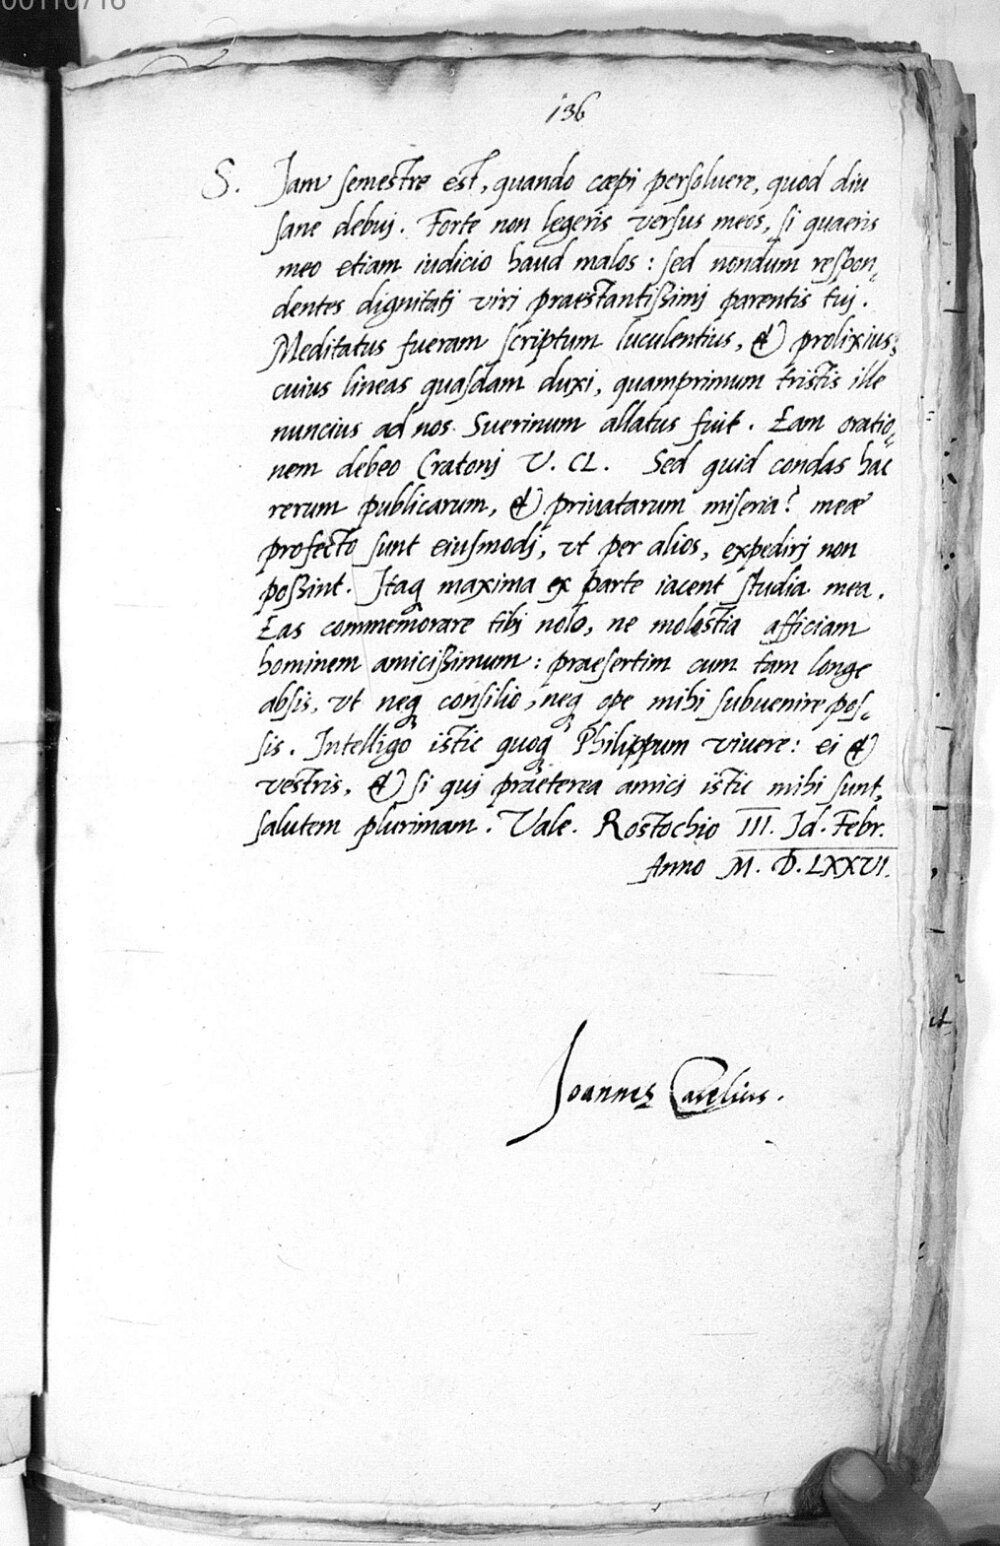 00110716
136
S. Jam semestre est, quando cœpi persoluere, quod diu
sane debuj. Forte non legeris versus meos, si quaeris
meo etiam iudicio haud malos: sed nondum respon-
dentes dignitatj viri praestantißimj parentis tuj.
Meditatus fueram scriptum luculentius, & prolixius:
cuius lineas quasdam duxi, quamprimum tristis ille
nuncius ad nos Suerinum allatus fuit. Eam oratio-
nem debeo Cratonj V. CL. Sed quid condas hac
rerum publicarum, & priuatarum miseria? meæ
profecto sunt eiusmodj, vt per alios, expedirj non
poßint. Itaq maxima ex parte iacent studia mea.
Eas commemorare tibj nolo, ne molestia afficiam
hominem amicißimum: praesertim cum tam longe
absis, vt neq consilio, neq ope mihi subuenire pos-
sis. Intelligo istic quoq Philippum viuere: ei &
vestris, & si quj praeterea amicj istic mihi sunt,
salutem plurimam. Vale. Rostochio III. Id. Febr.
Anno M. D. LXXVI.
Joannes Caselius.